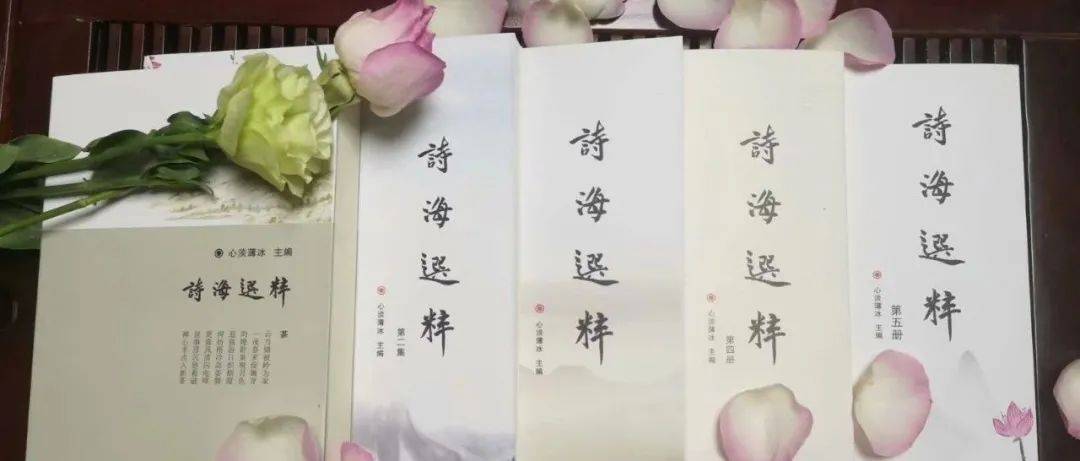 心淡薄冰 主编
詩海選粹
茶
詩海選粹
心淡薄冰 主编
第二集
詩海選粹
心淡薄冰 主编
詩海選粹
心淡薄冰 主编
第四册
詩海選粹
心淡薄冰 主编
第五册